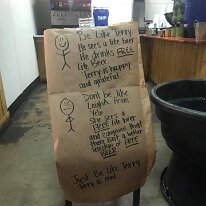 Be Like Terry.
He sees a lite beer
He drinks FREE
lite Beer.
Terry is happy
and grateful.
Don't be like
Leigh
She sees a
FREE lite beer
and complains that
there isn't a better
selection of
FREE
BEER
Just Be Like Terry.
Terry is cool.